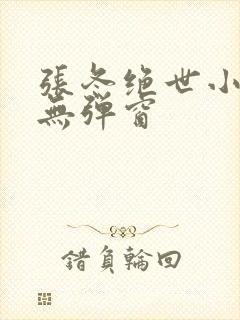 張冬绝世小
無弹窗
錯負輪回